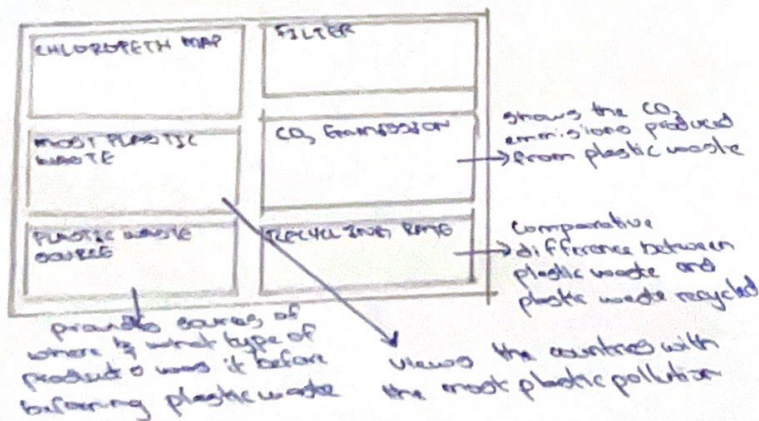 CHLOROPETH MAP
FILTER
MOST PLASTIC
WASTE
CO₂ EMISSION
PLASTIC WASTE
SOURCE
RECYCLING RATE
shows the CO₂
emmisions produced
from plastic waste
comparative
difference between
plastic waste and
plastic waste recycled
provides sources of
where & what type of
product was it before
becoming plastic waste
views the countries with
the most plastic pollution